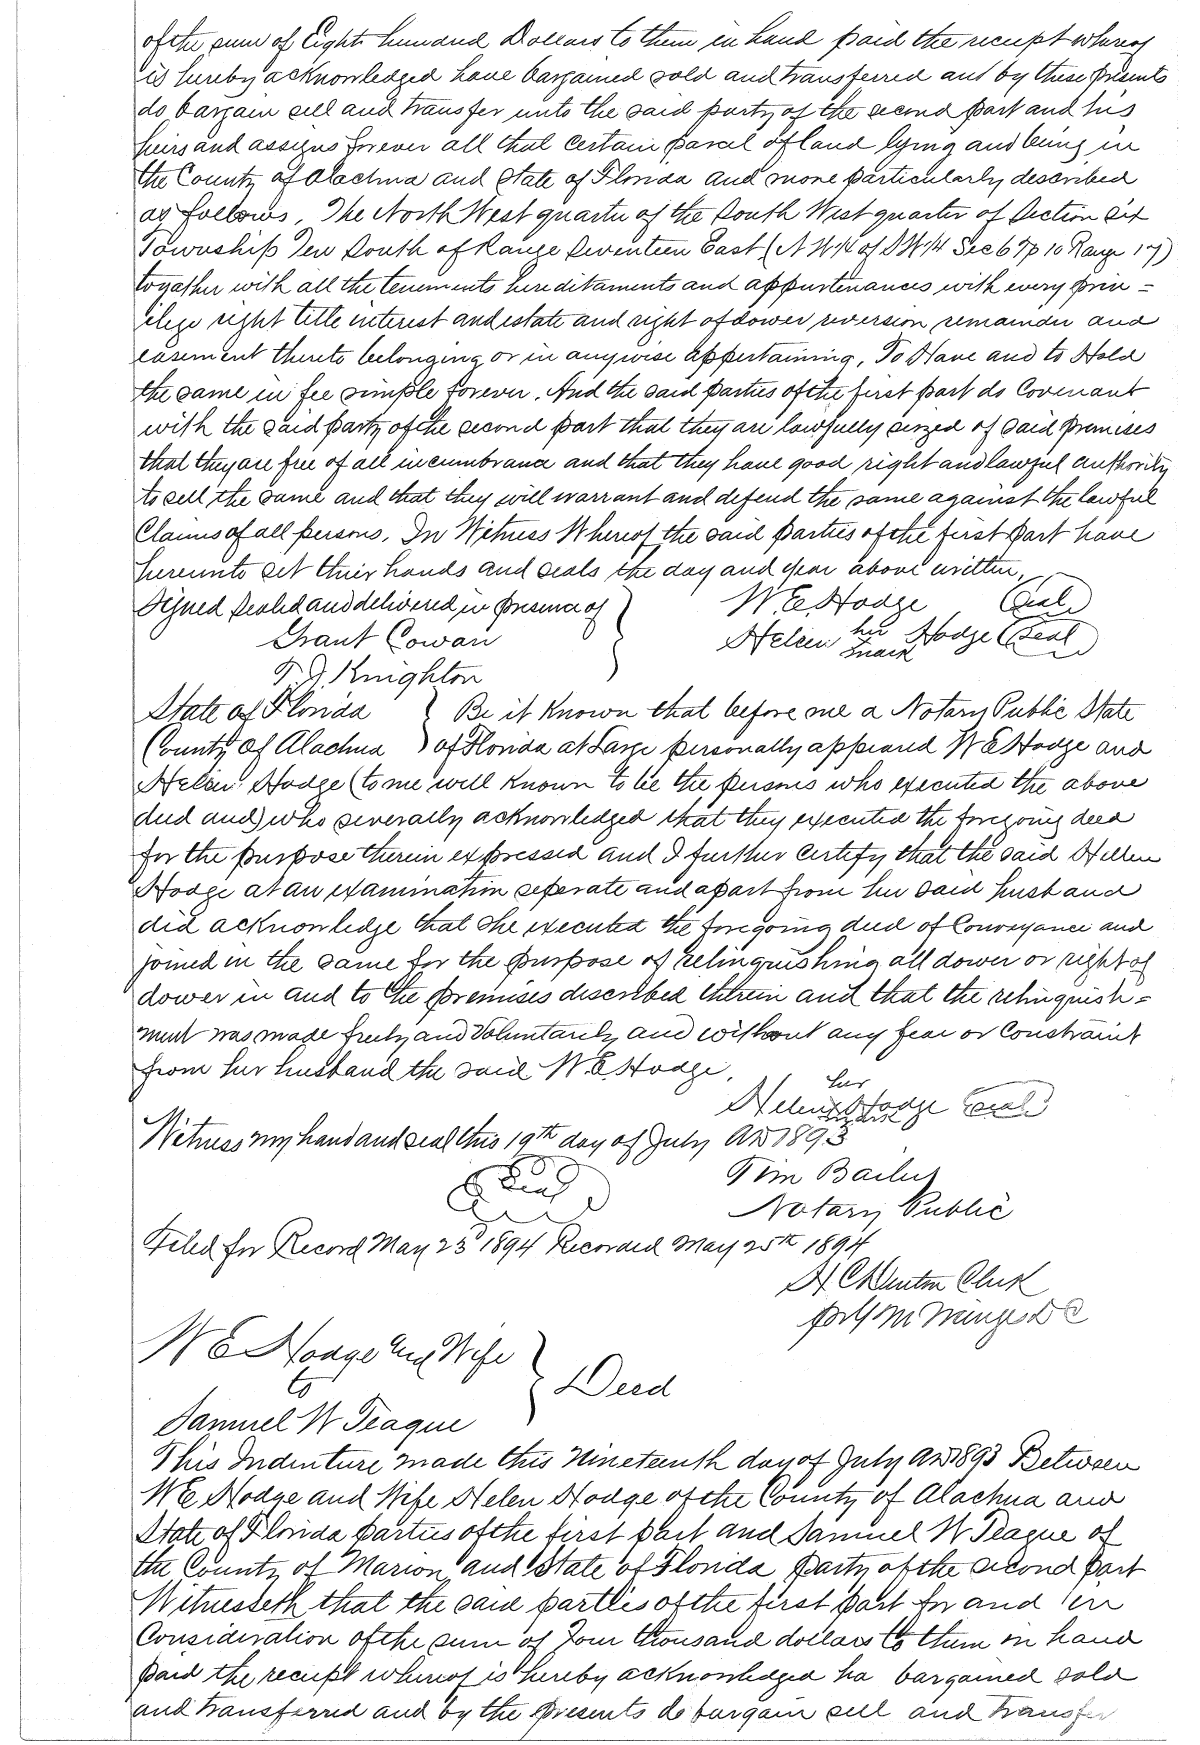 of the sum of Eight hundred Dollars to them in hand paid the receipt whereof
is hereby acknowledged have bargained sold and transferred and by these presents
do bargain sell and transfer unto the said party of the second part and his
heirs and assigns forever all that certain parcel of land lying and being in
the County of Alachua and State of Florida and more particularly described
as follows. The North West quarter of the South West quarter of Section Six
Township Ten South of Range Seventeen East (N W ¼ of S W ¼ Sec 6 Tp 10 Range 17)
togather with all the tenements hereditaments and appurtenances with every priv=
ilege right title interest and estate and right of dower, reversion, remainder and
easement thereto belonging or in anywise appertaining, To Have and to Hold
the same in fee simple forever. And the said parties of the first part do Covenant
with the said party of the second part that they are lawfully seized of said premises
that they are free of all incumbrance and that they have good right and lawful authority
to sell the same and that they will warrant and defend the same against the lawful
Claims of all persons. In Witness Whereof the said parties of the first part have
hereunto set their hands and seals the day and year above written.
Signed Sealed and delivered in presence of } W. E. Hodge (Seal)
Grant Cowan Helen her mark Hodge (Seal)
T. J. Knighton
State of Florida } Be it Known that before me a Notary Public State
County of Alachua } of Florida at Large personally appeared W E Hodge and
Helen Hodge (to me well Known to be the persons who executed the above
deed and) who severally acknowledged that they executed the foregoing deed
for the purpose therein expressed and I further certify that the said Hellen
Hodge at an examination seperate and apart from her said husband
did acknowledge that she executed the foregoing deed of Conveyance and
joined in the same for the purpose of relinquishing all dower or right of
dower in and to the premises described therein and that the relinquish=
ment was made freely and Voluntarily and without any fear or Constraint
from her husband the said W. E. Hodge.
Helen her mark Hodge (Seal)
Witness my hand and seal this 19th day of July AD 1893
(Seal) Tim Bailey
Notary Public
Filed for Record May 23d 1894 Recorded May 25th 1894
H C Denton Clerk
W E Hodge and Wife
to } Deed
Samuel W Teague
This Indenture made this Nineteenth day of July AD 1893 Between
W E Hodge and Wife Helen Hodge of the County of Alachua and
State of Florida parties of the first part and Samuel W Teague of
the County of Marion and State of Florida party of the second part
Witnesseth that the said parties of the first part for and in
Consideration of the sum of Four thousand dollars to them in hand
paid the receipt whereof is hereby acknowledged ha bargained sold
and transferred and by the presents do bargain sell and transfer